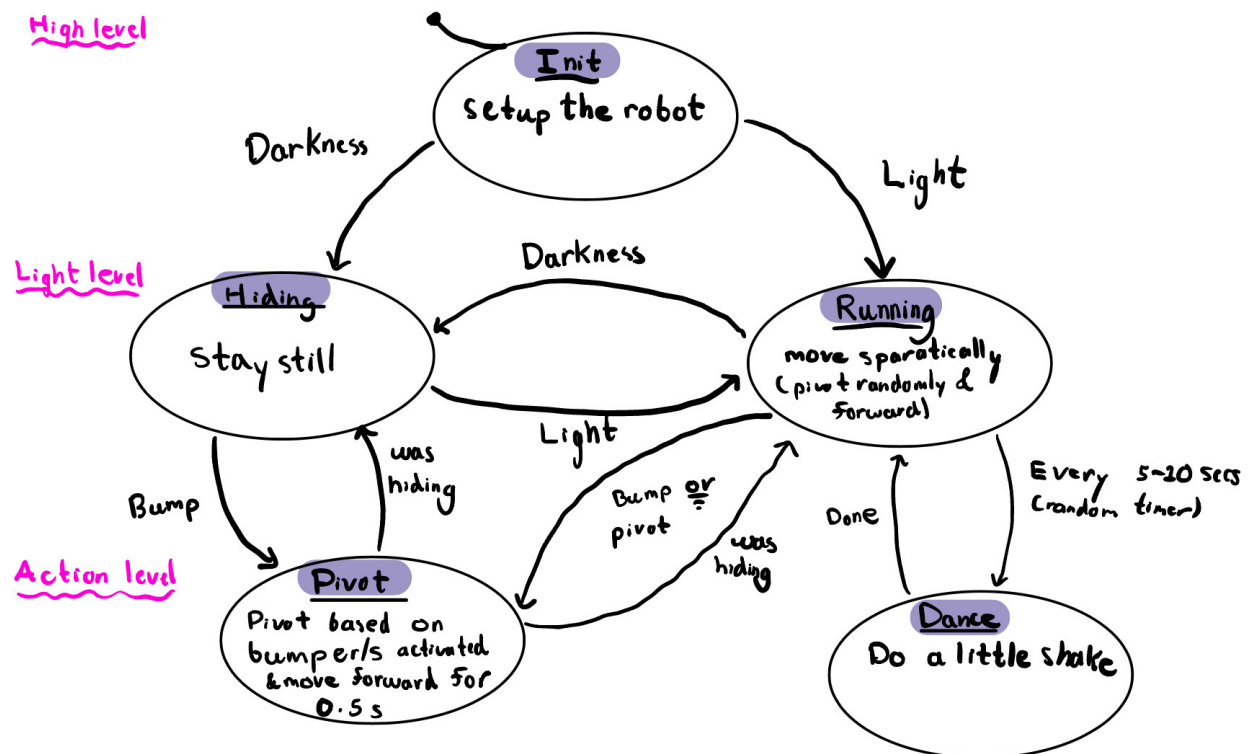 High level
Init
setup the robot
Darkness
Light
Light level
Hiding
Stay still
Darkness
Running
move sparatically
(pivot randomly &
forward)
Light
Bump
was
hiding
Bump or
pivot
was
hiding
Done
Every 5-10 secs
(random timer)
Action level
Pivot
Pivot based on
bumper/s activated
& move forward for
0.5s
Dance
Do a little shake